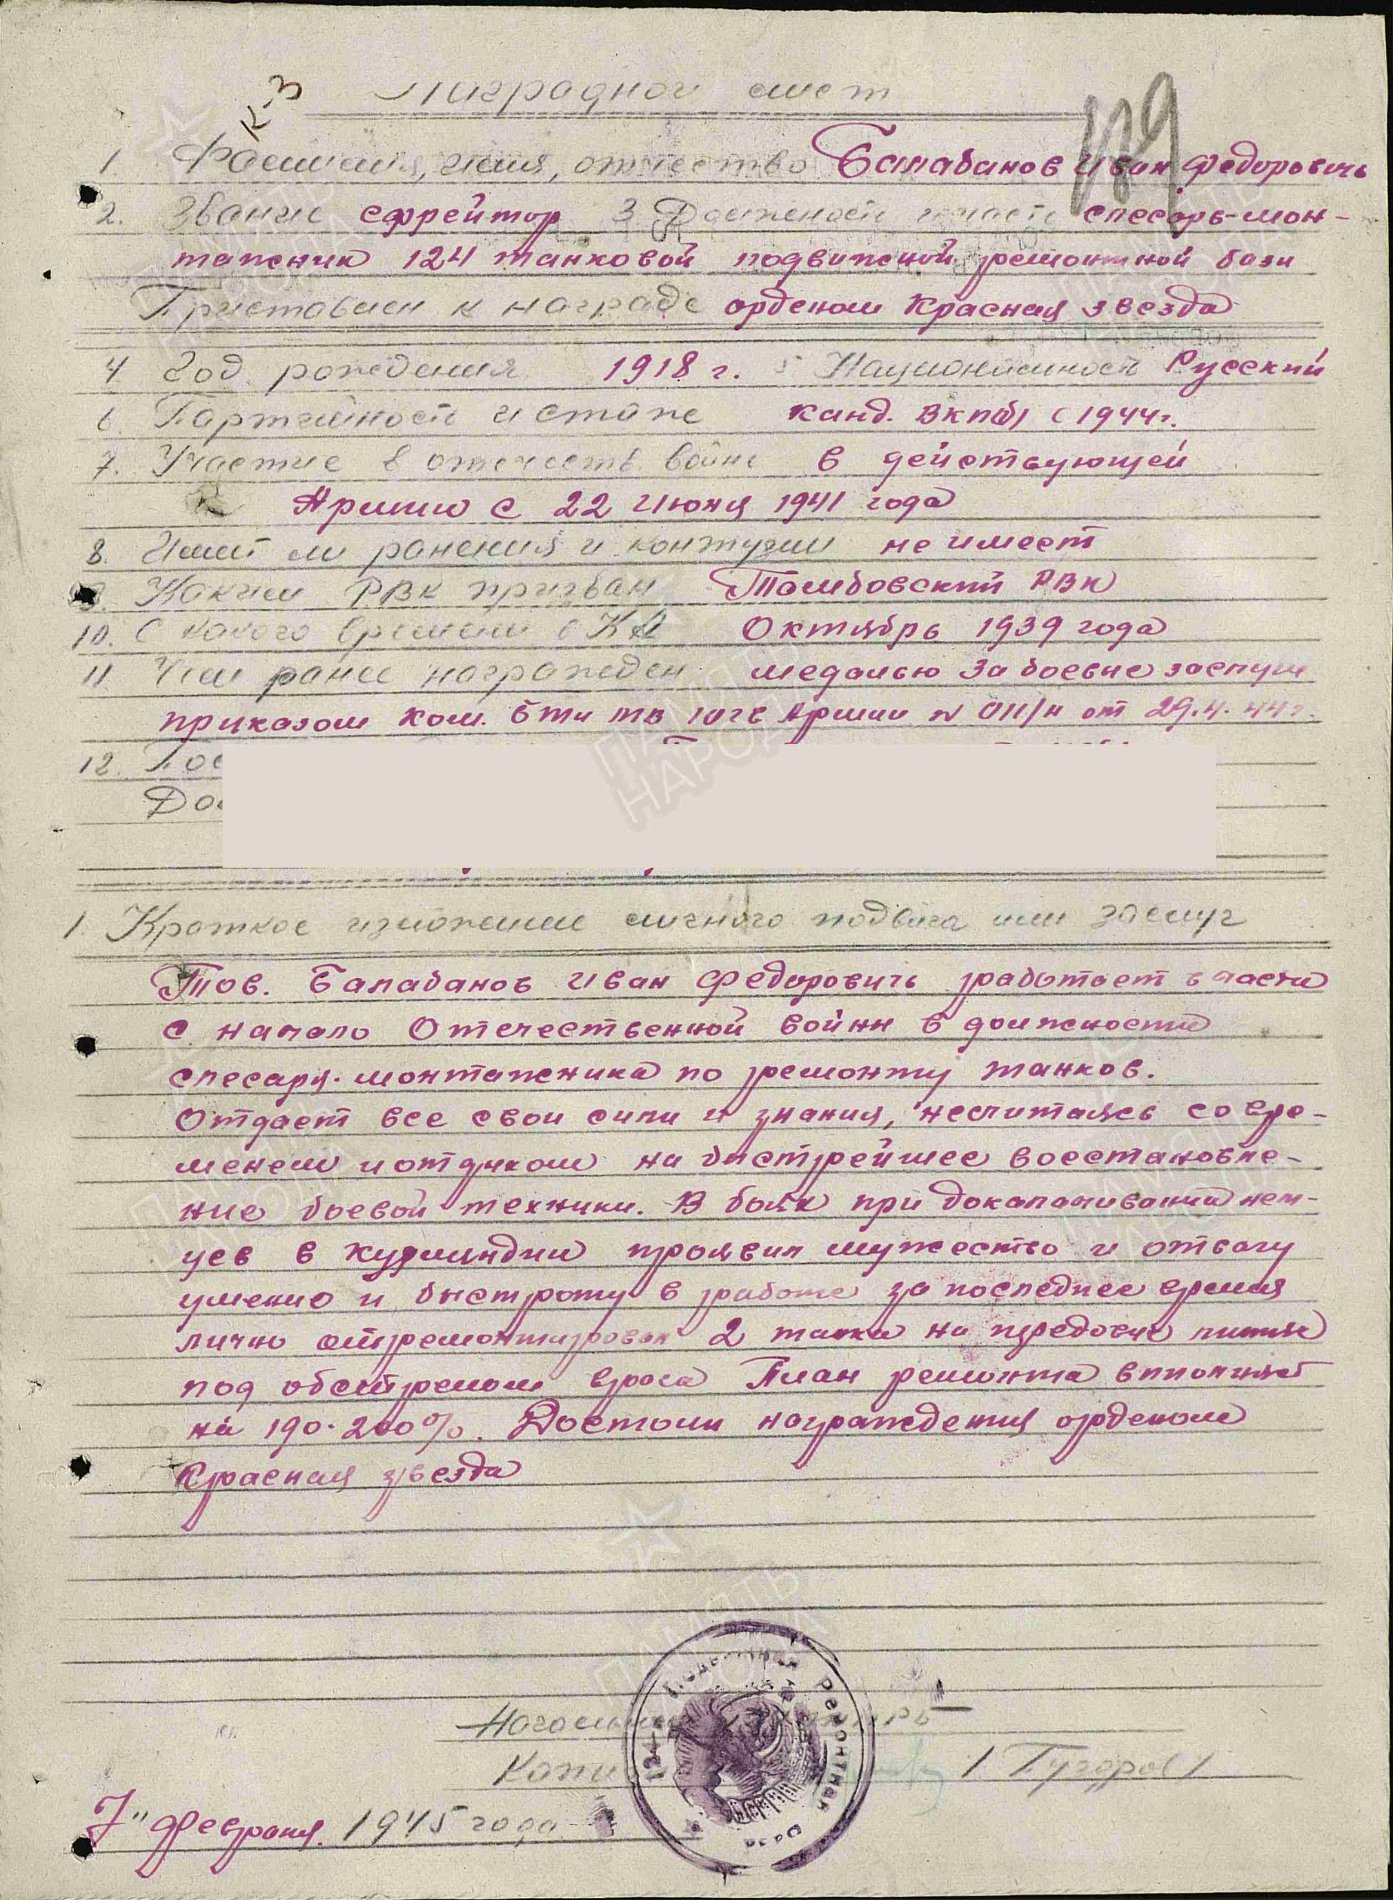 К-З
Наградной лист
189
1. Фамилия, имя, отчество Балабанов Иван Федорович
2. Звание ефрейтор 3 Должность и часть слесарь-мон-
тажник 124 танковой подвижной ремонтной бази
Приставлен к награде орденом Красная звезда
4. Год рождения 1918 г. 5 Национальность Русский
6. Партийность и стаж канд. ВКП(б) с 1944г.
7. Участие в отечеств. войне в действующей
Армии с 22 Июня 1941 года
8. Имеет ли ранения и контузии не имеет
9. Каким РВК призван Тамбовский РВК
10. С какого времени в КА Октябрь 1939 года
11. Чем ранее награжден медалью За боевые заслуги
приказом ком. БТ и МВ 10 гв Армии № 011/н от 29.4.44г.
12. Пос
Дом
1. Краткое изложение личного подвига или заслуг
Тов. Балабанов Иван Федорович работает в части
с начало Отечественной войни в должности
слесаря-монтажника по ремонту танков.
Отдает все свои сили и знания, несчитаясь со вре-
менем и отдихом на бистрейшее восстановле-
ние боевой техники. В боях при доколачивании нем-
цев в Курляндии проявил мужество и отвагу
умению и быстроту в работе за последнее время
лично отремонтировал 2 танка на передовие линии
под обстрелом врага План ремонта виполняет
на 190-200%. Достоин награждения орденом
Красная звезда
Подвижная Ремонтная База
/Гугоров/
7" февраля. 1945 года
ПАМЯТЬ НАРОДА